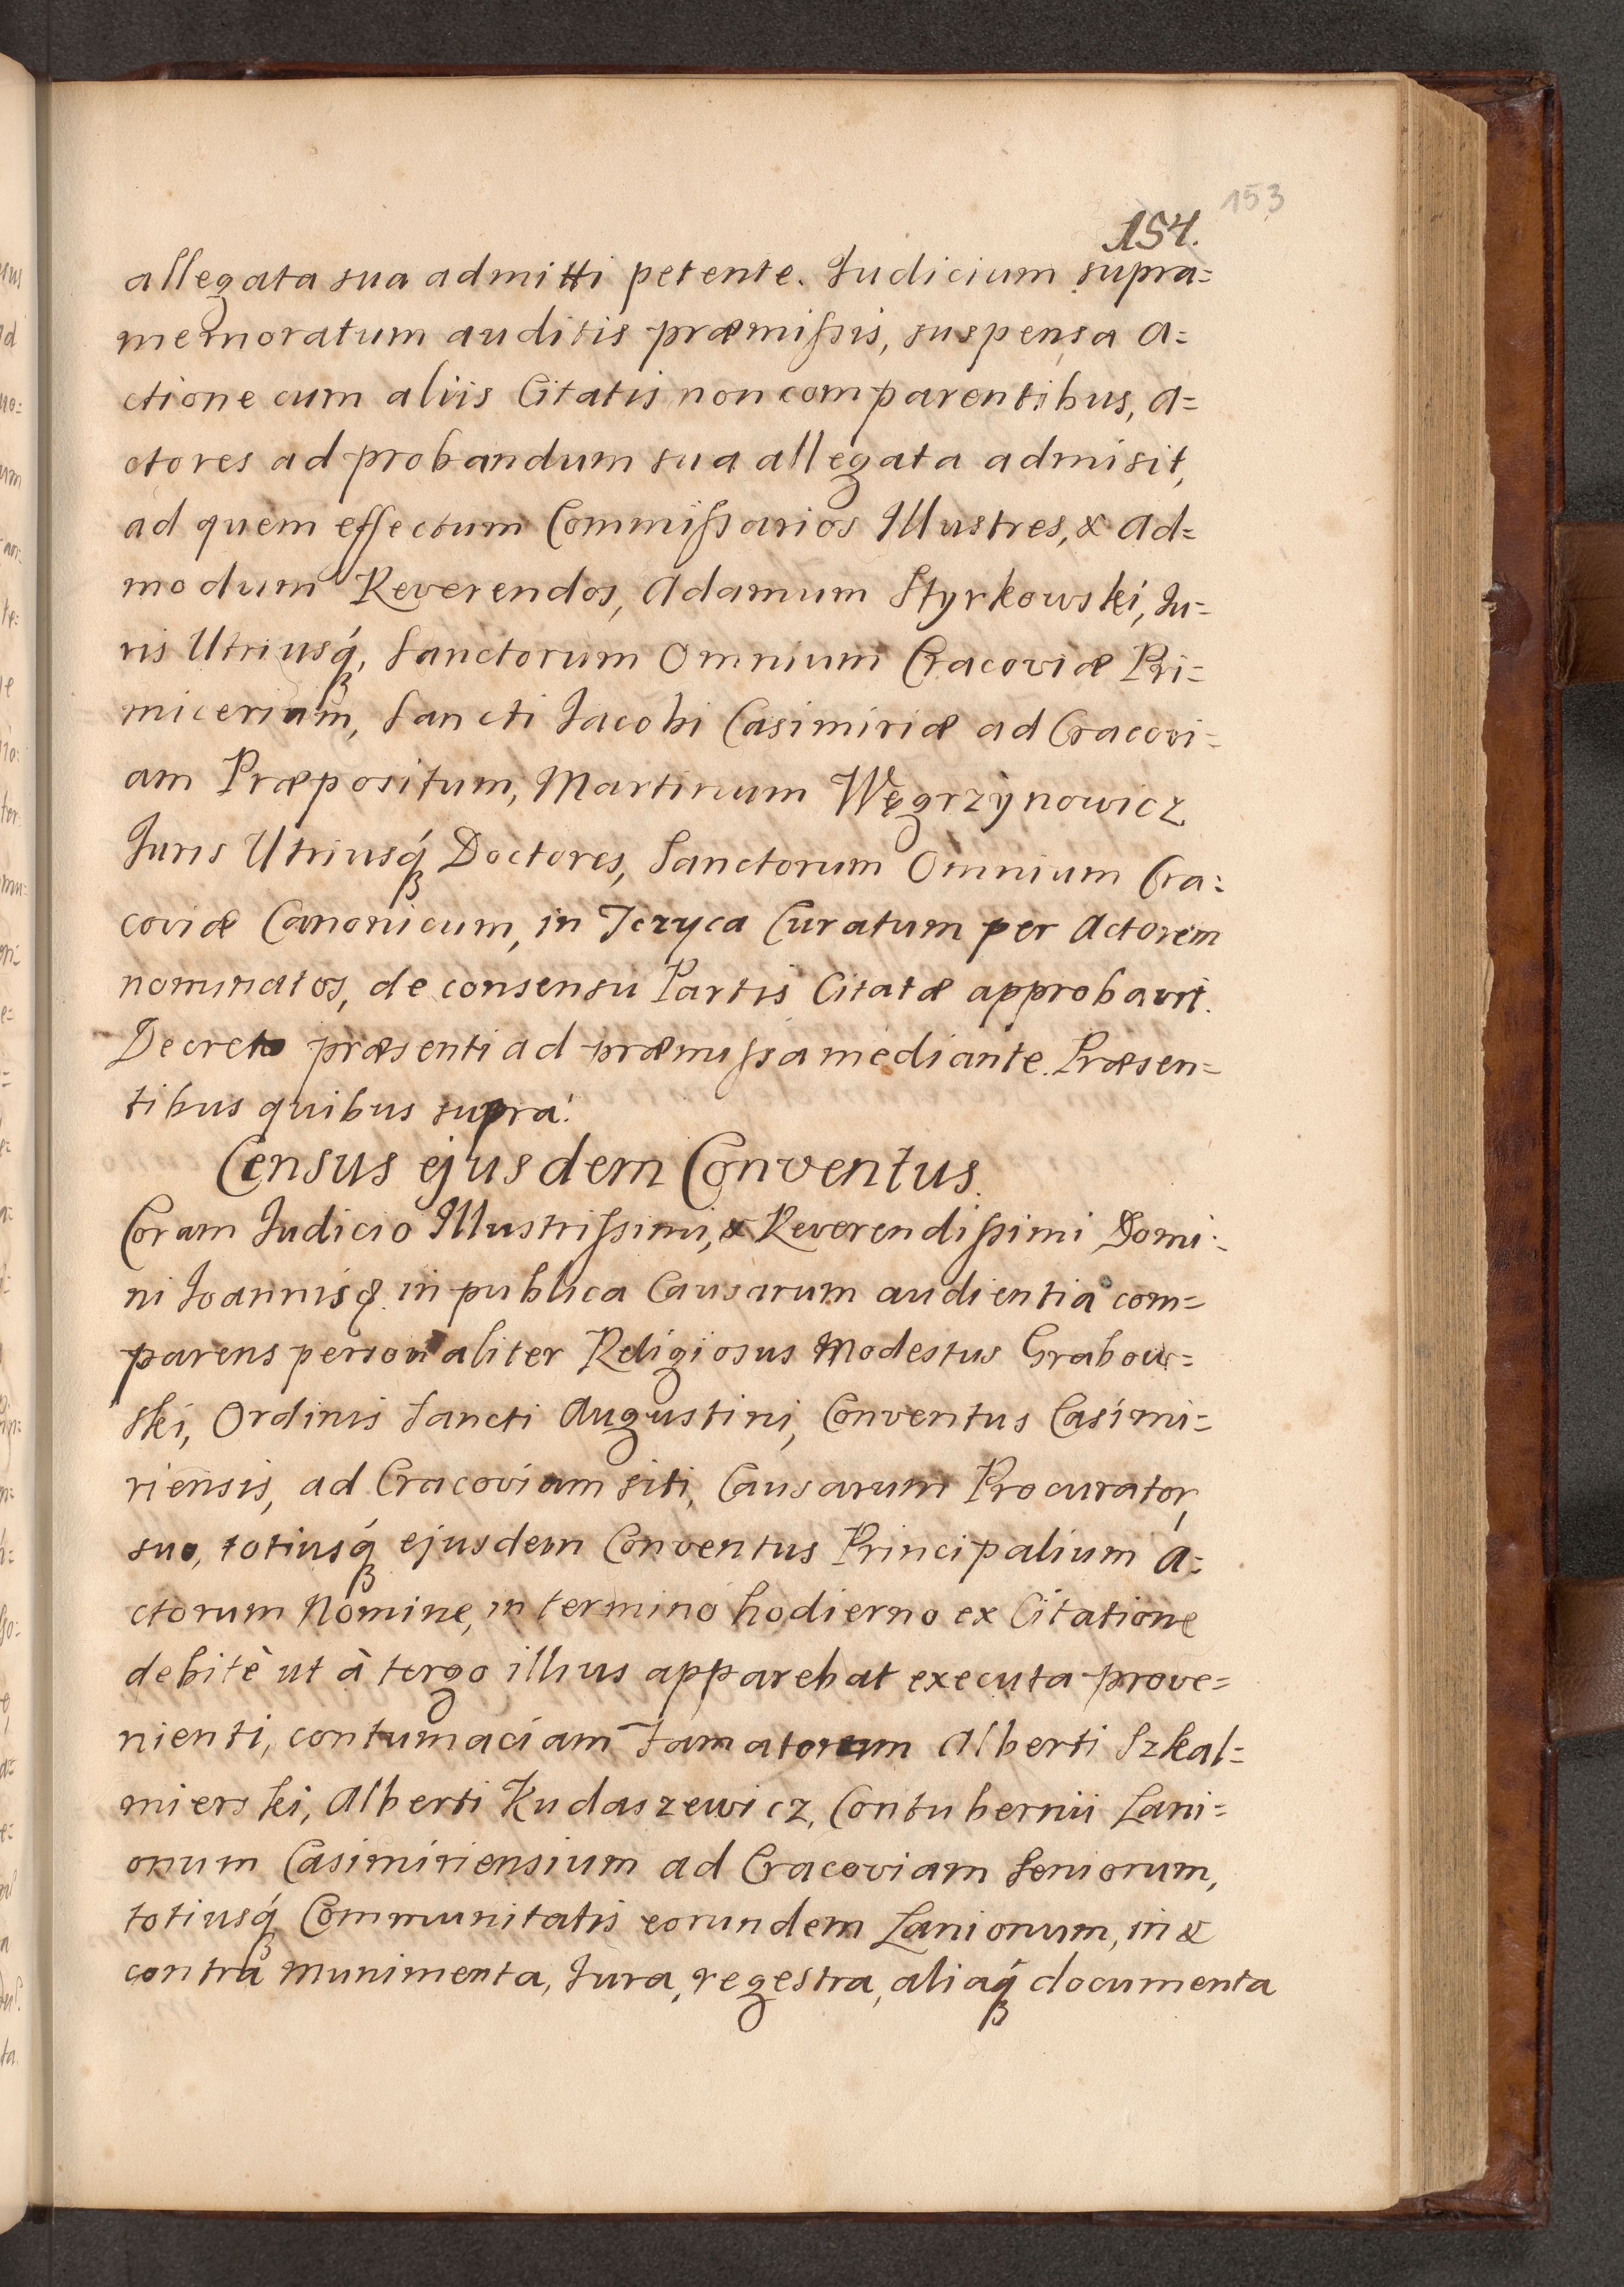 153
154.
allegata sua admitti petente. Judicium supra=
memoratum auditis præmissis, suspensa A=
ctione cum aliis Citatis non comparentibus, A=
ctores ad probandum sua allegata admisit,
ad quem effectum Commissarios Illustres, & Ad=
modum Reverendos, Adamum Styrkowski, Ju=
ris Utriusq́, Sanctorum Omnium Cracoviæ Pri=
micerium, Sancti Jacobi Casimiriæ ad Cracovi=
am Præpositum, Martinum Węgrzynowicz
Juris Utriusq́ Doctores, Sanctorum Omnium Cra=
coviæ Canonicum, in Tczyca Curatum per Actorem
nominatos, de consensu Partis Citatæ approbavit.
Decreto præsenti ad præmissa mediante. Præsen=
tibus quibus supra.
Census ejusdem Conventus.
Coram Judicio Illustrissimi, & Reverendissimi Domi=
ni Joannis &. in publica Causarum audientia com=
parens personaliter Religiosus Modestus Grabow=
ski, Ordinis Sancti Augustini, Conventus Casimi=
riensis, ad Cracoviam siti, Causarum Procurator,
suo, totiusq́ ejusdem Conventus Principalium A=
ctorum Nomine, in termino hodierno ex Citatione
debitè ut à tergo illius apparebat executa prove=
nienti, contumaciam Famatorum Alberti Szkal=
mierski, Alberti Kudaszewicz, Contubernii Lani=
onum Casimiriensium ad Cracoviam Seniorum,
totiusq́ Communitatis eorundem Lanionum, in &
contra munimenta, Jura, regestra, aliaq́ documenta